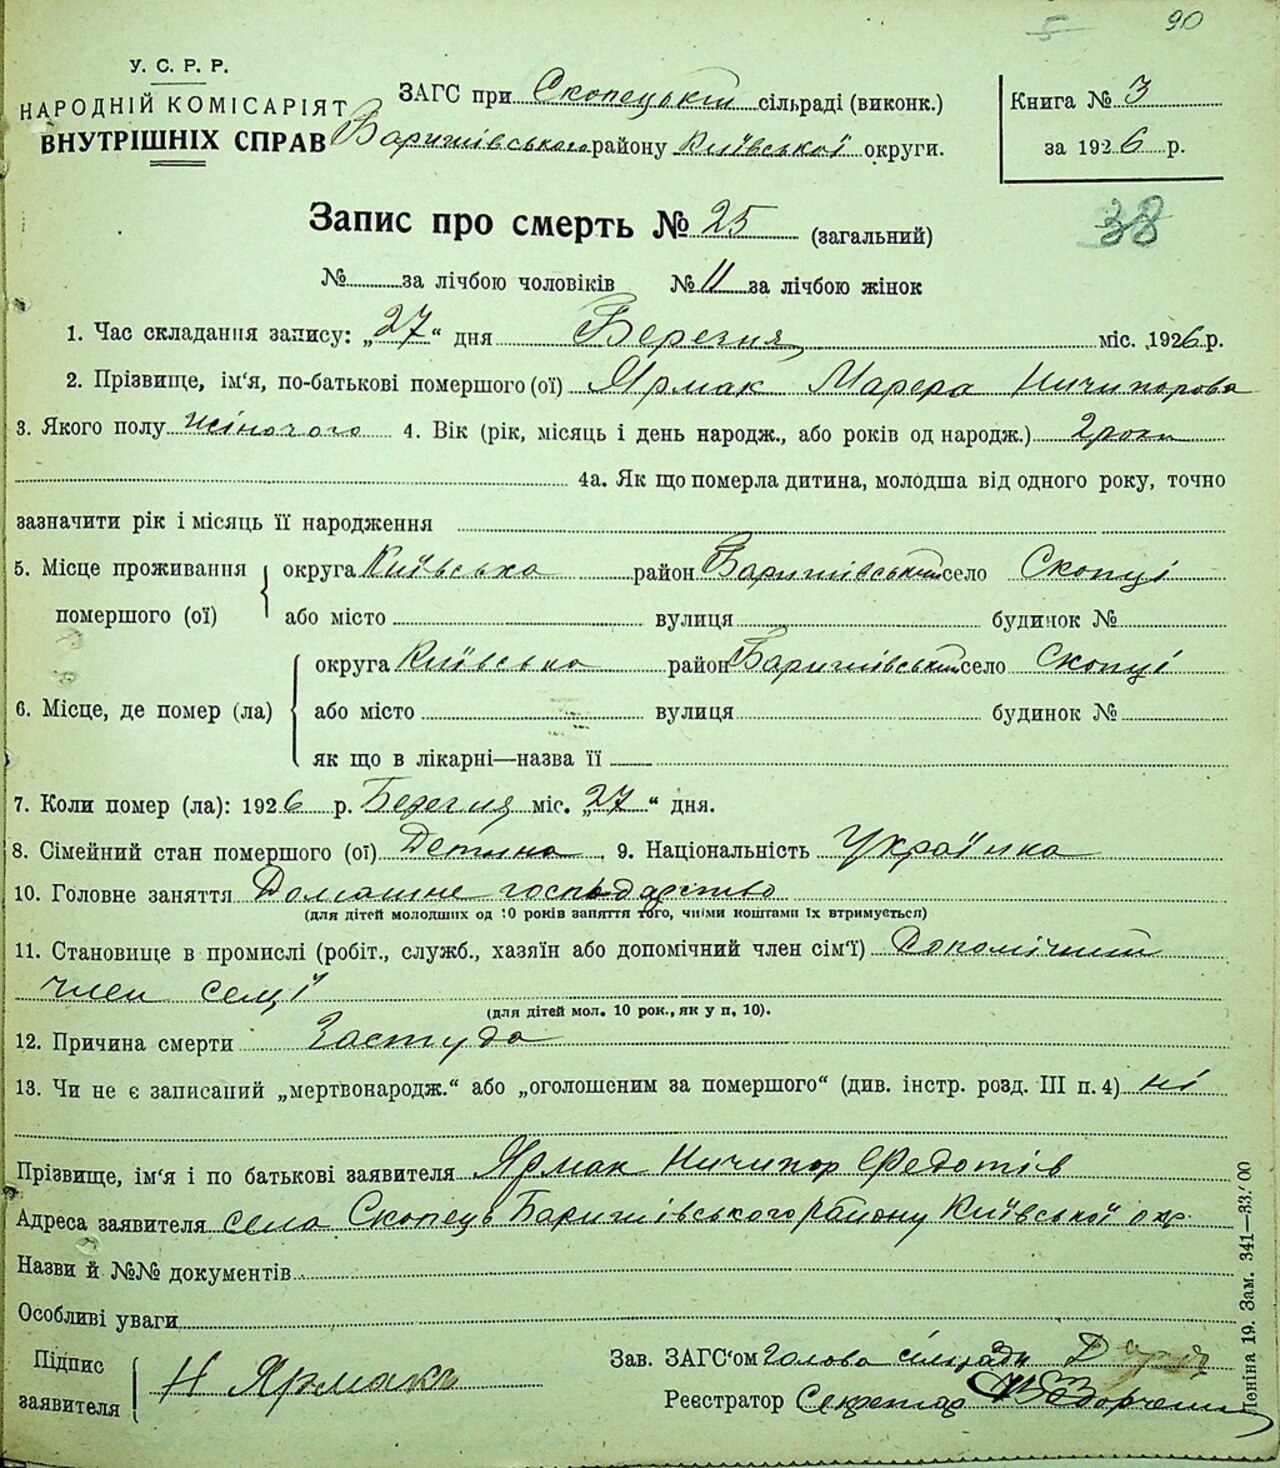 90
У. С. Р. Р.
НАРОДНІЙ КОМІСАРІЯТ
ВНУТРІШНІХ СПРАВ
ЗАГС при Скопецькій сільраді (виконк.)
Баришівського району Київської округи.
Книга № 3
за 1926 р.
Запис про смерть № 25 (загальний)
38
№ за лічбою чоловіків № 11 за лічбою жінок
1. Час складання запису: „27“ дня Березня міс. 1926 р.
2. Прізвище, ім‘я, по-батькові помершого (ої) Ярмак Марера Ничипорова
3. Якого полу жіночого 4. Вік (рік, місяць і день народж., або років од народж.) 2 роки
4а. Як що померла дитина, молодша від одного року, точно
зазначити рік і місяць її народження
5. Місце проживання помершого (ої) округа Київська район Баришівський село Скопці
або місто вулиця будинок №
6. Місце, де помер (ла) округа Київська район Баришівський село Скопці
або місто вулиця будинок №
як що в лікарні—назва її
7. Коли помер (ла): 1926 р. Березня міс. „27“ дня.
8. Сімейний стан помершого (ої) Детина 9. Національність Українка
10. Головне заняття Домашне господарство
(для дітей молодших од 10 років заняття того, чиїми коштами їх втримується)
11. Становище в промислі (робіт., служб., хазяїн або допомічний член сім‘ї) Допомічний
член семї
(для дітей мол. 10 рок., як у п, 10).
12. Причина смерти Застуда
13. Чи не є записаний „мертвонародж.“ або „оголошеним за помершого“ (див. інстр. розд. III п. 4) ні
Прізвище, ім‘я і по батькові заявителя Ярмак Ничипор Федотів
Адреса заявителя села Скопець Баришівського району Київської окр.
Назви й №№ документів
Особливі уваги
Підпис заявителя Н Ярмакъ
Зав. ЗАГС‘ом Голова сільради
Реєстратор Секретар
Леніна 19. Зам. 341—33.